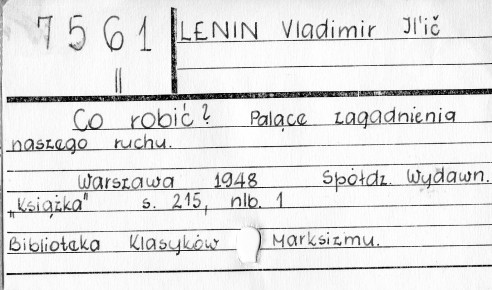 7561 LENIN Vladimir Il'ič
II
Co robić? Palące zagadnienia
naszego ruchu.
Warszawa 1948 Spółdz. Wydawn.
„Książka" s. 215, nlb. 1
Biblioteka Klasyków Marksizmu.